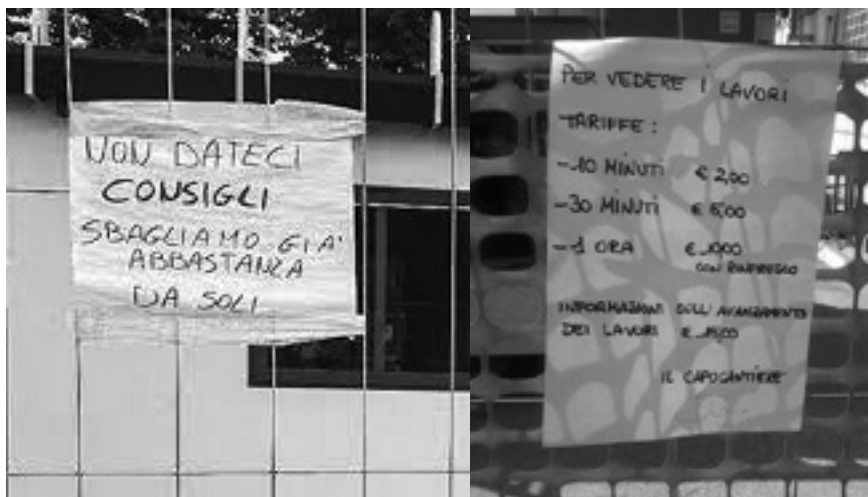 NON DATECI
CONSIGLI
SBAGLIAMO GIA'
ABBASTANZA
DA SOLI
PER VEDERE I LAVORI
TARIFFE:
-10 MINUTI € 2,00
-30 MINUTI € 5,00
-1 ORA € 10,00
CON RINFRESCO
INFORMAZIONI SULL'AVANZAMENTO
DEI LAVORI € 15,00
IL CAPOCANTIERE